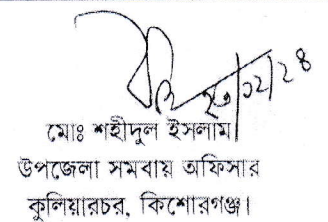 ২৩/১২/২৪
মোঃ শহীদুল ইসলাম
উপজেলা সমবায় অফিসার
কুলিয়ারচর, কিশোরগঞ্জ।